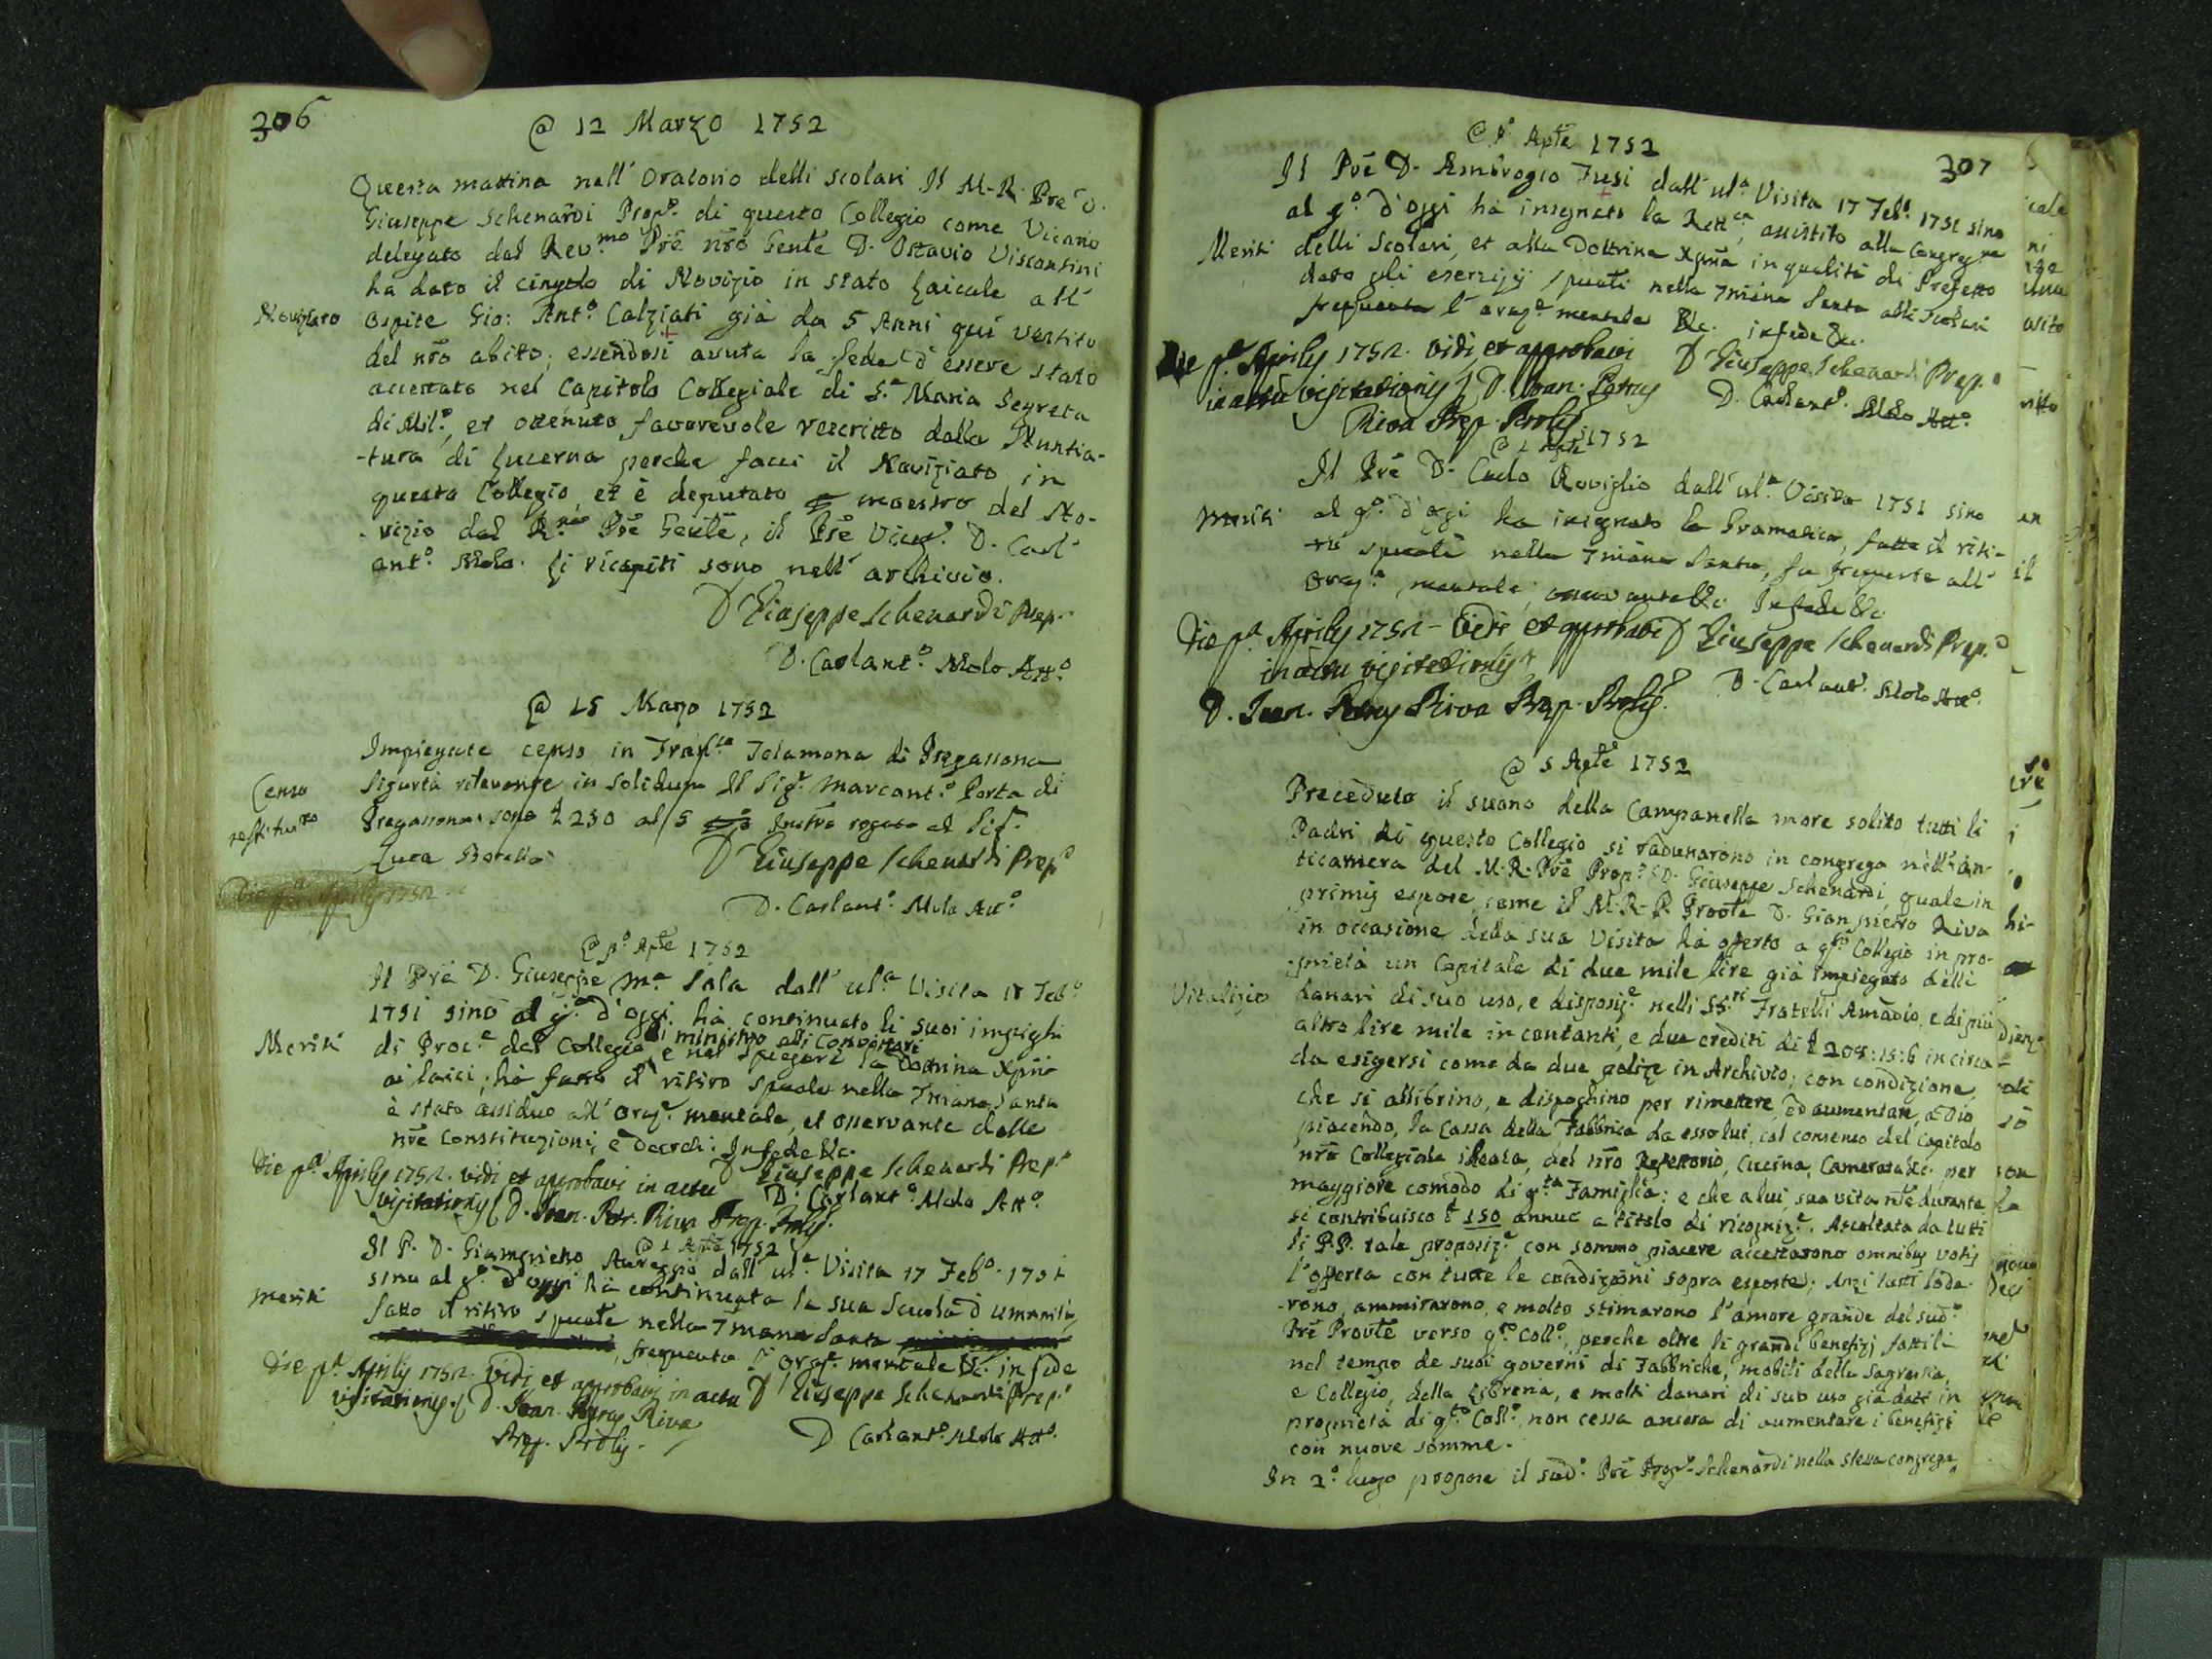 306
@ 12 Marzo 1752
Questa mattina nell' Oratorio delli scolari Il M.R. Pre D.
Giuseppe Schenardi Prep.o di questo Collegio come Vicario
delegato dal Rev.mo Pre nro Gente D. Ottavio Viscontini
ha dato il cingolo di Novizio in stato Laicale all'
Noviziato
ospite Gio: Ant.o Calziati già da 5 Anni qui vestito
del nro abito; essendosi avuta la fede d' essere stato
accettato nel Capitolo Collegiale di S.a Maria Segreta
di Mil.o, et ottenuto favorevole rescritto dalla Nuntia-
-tura di Lucerna perche facci il Noviziato in
questo Collegio, et è deputato maestro del No-
-vizio dal R.mo Pre Gente, il Pre Vicep. D. Carl'
ant.o Molo. Li ricapiti sono nell' archivio.
D Giuseppe Schenardi Prep.
D. Carlant.o Molo Att.o
@ 15 Marzo 1752
Impiegate censo in Fran.co Tolamona di Pregassona
Censo restituito
Sigurtà rilevante in solidum Il Sig.r Marcant.o Porta di
Pregassona sono £ 230 al 5 Instro rogato al Sig.
Luca Borella
D Giuseppe Schenardi Prep.o
Die p.a Aprilis 1752
D. Carlant.o Molo Att.o
@ p.o Aple 1752
Il Pre D. Giuseppe M.a Sala dall' ul.a Visita 17 Feb.o
1751 sino al g.o d'oggi ha continuato li suoi impieghi
Meriti
di Proc.e del Collegio, di ministro alli Convittori
e nel spiegare la Dottrina Xpna
ai laici; ha fatto il ritiro spuale nella 7mana Santa
è stato assiduo all' oraz.e mentale, et osservante delle
nre Constituzioni, e decreti: In fede &c.
Die p.a Aprilis 1752. vidi et approbavi in actu
D Giuseppe Schenardi Prep.o
visitationis D. Ioan. Petr. Riva Prep. Prolis.
D. Carlant.o Molo Att.o
@ 1 Aple 1752
Il P. D. Giampietro Aureggio dall' ul.a Visita 17 Feb.o 1751
sino al g.o d'oggi ha continuata la sua Scuola d' umanità,
Meriti
fatto il ritiro spuale nella 7mana Santa
, frequenta l' oraz.e mentale &c. in fede
Die p.a Aprilis 1752. Vidi et approbavi in actu
D Giuseppe Schenardi Prep.o
visitationis. D. Ioan. Petrus Riva
Prep. Prolis.
D. Carlant.o Molo Att.o
307
@ p.o Aple 1752
Il Pre D. Ambrogio Fusi dall' ul.a Visita 17 Feb.o 1751 sino
al g.o d'oggi ha insegnato la Rett.ca, assistito alla Congreg.ne
Meriti
delli Scolari, et alla Dottrina Xpna in qualità di Prefetto
dato gli esercizij spuali nella 7mana Santa alli Scolari
frequenta l' oraz.e mentale &c. in fede &c.
Die p.a Aprilis 1752. vidi, et approbavi
D Giuseppe Schenardi Prep.o
in actu visitationis D. Ioan. Petrus
D. Carlant.o Molo Att.o
Riva Prep. Prolis
@ 1 Aple 1752
Il Pre D. Carlo Roviglio dall' ul.a Visita 1751 sino
Meriti
al g.o d'oggi ha insegnato la Gramatica, fatto il riti-
-ro spuale nella 7mana Santa, fu frequente all'
oraz.e mentale, In fede &c.
Die p.a Aprilis 1752 - Vidi et approbavi
D Giuseppe Schenardi Prep.o
in actu visitationis
D. Carlant.o Molo Att.o
D. Ioan. Petrus Riva Prep. Prolis.
@ 5 Aple 1752
Preceduto il suono della Campanella more solito tutti li
Padri di questo Collegio si radunarono in congrega nell' an-
ticamera del M.R. Pre Prep.o D. Giuseppe Schenardi, quale in
primis espose, come il M.R.P. Provle D. Gianpietro Riva
in occasione della sua Visita ha oferto a q.sto Collegio in pro-
-prietà un Capitale di due mile lire già impiegato delli
Vitalizio
danari di suo uso, e disposiz.e nelli SS.ri Fratelli Amadio, e di più
altre lire mile in contanti, e due crediti di £ 208:15:6 in circa
da esigersi come da due polize in Archivio; con condizione,
che si allibrino, e dispoghino per rimettere, ed aumentare, a Dio
piacendo, la Cassa della Fabbrica da esso lui, col consenso del Capitolo
nro Collegiale ideata, del nro Refettorio, Cucina, Camerata &c. per
maggiore comodo di q.sta Famiglia: e che a lui, sua vita nle durante,
si contribuisco £ 150 annue a titolo di ricogniz.e. Ascoltata da tutti
li P.P. tale proposiz.e con sommo piacere accettarono omnibus votis
l' offerta con tutte le condizioni sopra esposte; Anzi tutti loda-
-rono, ammirarono, e molto stimarono l' amore grande del sud.o
Pre Provle verso q.sto Coll.o, perche oltre li grandi benefizj fattili
nel tempo de suoi governi di Fabbriche, mobili della Sagrestia,
e Collegio, della Libreria, e molti danari di suo uso già dati in
proprietà di q.sto Coll.o, non cessa ancora di aumentare i benefizj
con nuove somme.
In 2.o luogo propose il sud.o Pre Prep.o Schenardi nella stessa congrega,